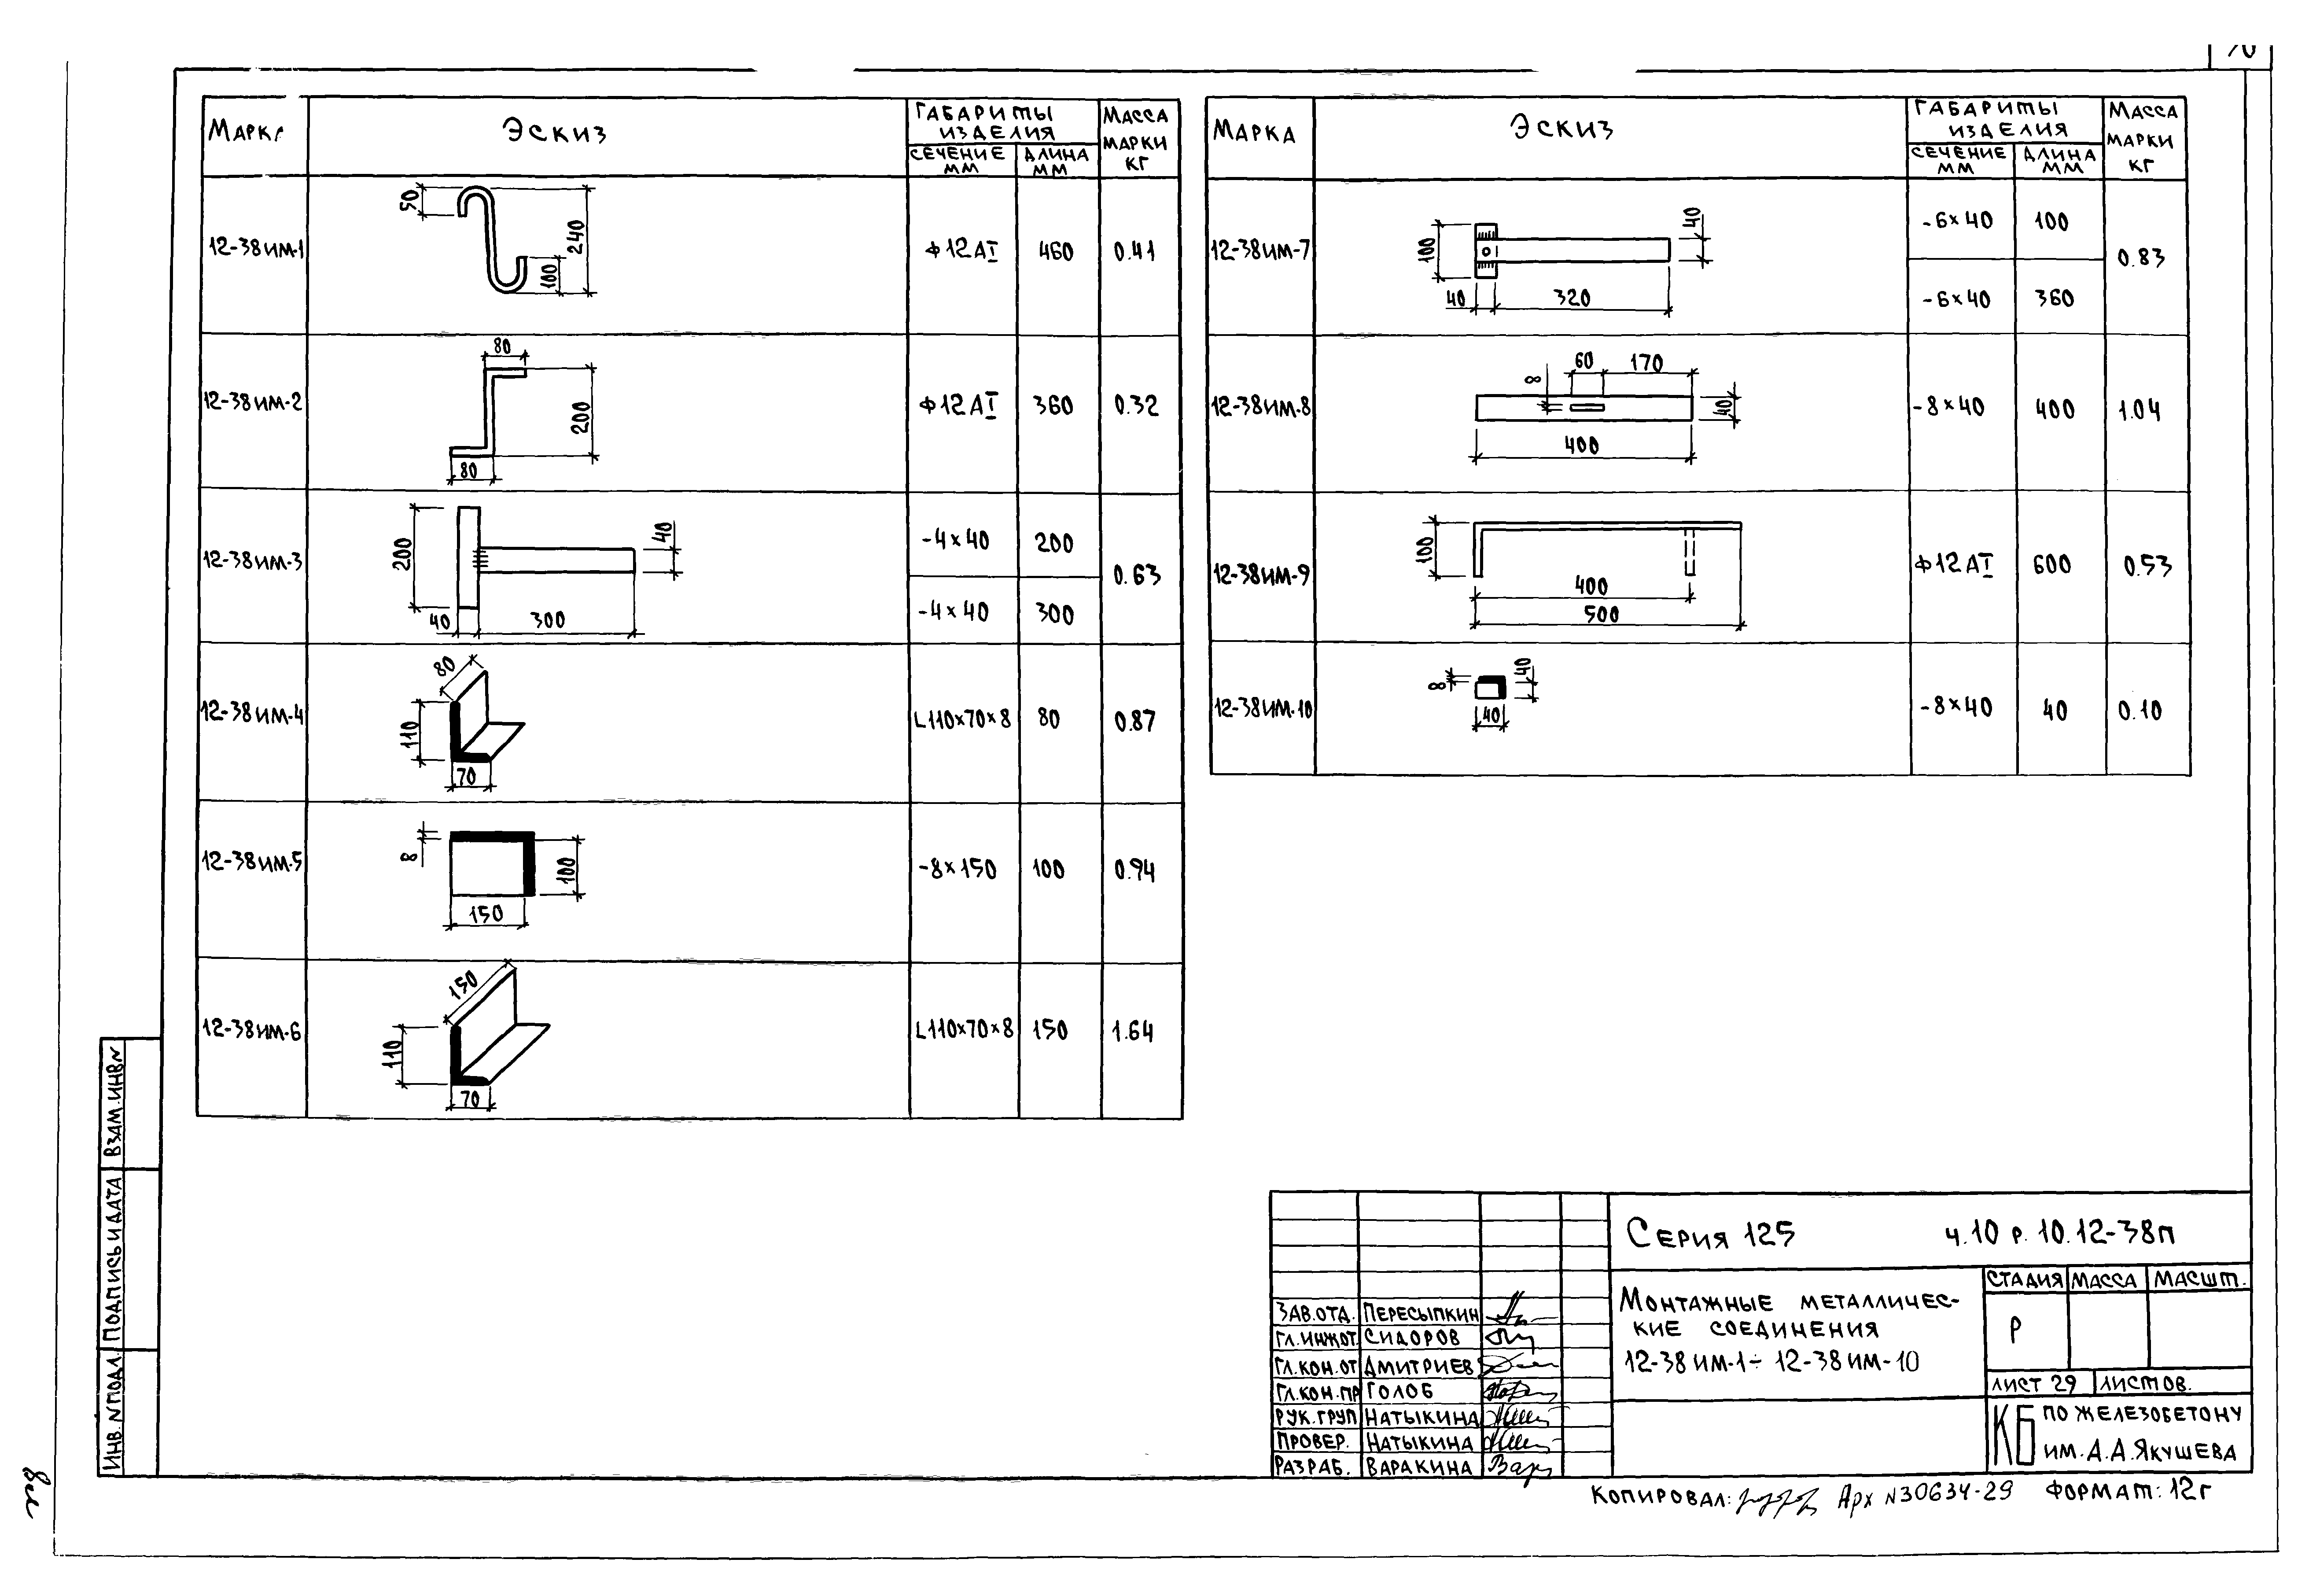 МАРКА
ЭСКИЗ
ГАБАРИТЫ ИЗДЕЛИЯ
СЕЧЕНИЕ ММ
ДЛИНА ММ
МАССА МАРКИ КГ
12-38ИМ-1
50
240
100
Ф12АI
460
0.41
12-38ИМ-2
80
200
80
Ф12АI
360
0.32
12-38ИМ-3
200
40
40
300
-4×40
200
-4×40
300
0.63
12-38ИМ-4
80
110
70
L110×70×8
80
0.87
12-38ИМ-5
8
100
150
-8×150
100
0.94
12-38ИМ-6
150
110
70
L110×70×8
150
1.64
МАРКА
ЭСКИЗ
ГАБАРИТЫ ИЗДЕЛИЯ
СЕЧЕНИЕ ММ
ДЛИНА ММ
МАССА МАРКИ КГ
12-38ИМ-7
100
40
40
320
-6×40
100
-6×40
360
0.83
12-38ИМ-8
8
60
170
40
400
-8×40
400
1.04
12-38ИМ-9
100
400
500
Ф12АI
600
0.53
12-38ИМ-10
8
40
40
-8×40
40
0.10
ВЗАМ.ИНВ.N
ПОДПИСЬ И ДАТА
ИНВ.N ПОДЛ.
ЗАВ.ОТД. ПЕРЕСЫПКИН
ГЛ.ИНЖ.ОТ СИДОРОВ
ГЛ.КОН.ОТ ДМИТРИЕВ
ГЛ.КОН.ПР ГОЛОБ
РУК.ГРУП НАТЫКИНА
ПРОВЕР. НАТЫКИНА
РАЗРАБ. ВАРАКИНА
СЕРИЯ 125 Ч.10 Р.10.12-38П
МОНТАЖНЫЕ МЕТАЛЛИЧЕС-
КИЕ СОЕДИНЕНИЯ
12-38ИМ-1÷12-38ИМ-10
СТАДИЯ МАССА МАСШТ.
Р
ЛИСТ 29 ЛИСТОВ.
КБ ПО ЖЕЛЕЗОБЕТОНУ
ИМ. А.А.ЯКУШЕВА
КОПИРОВАЛ: Арх N30634-29 ФОРМАТ: 12Г